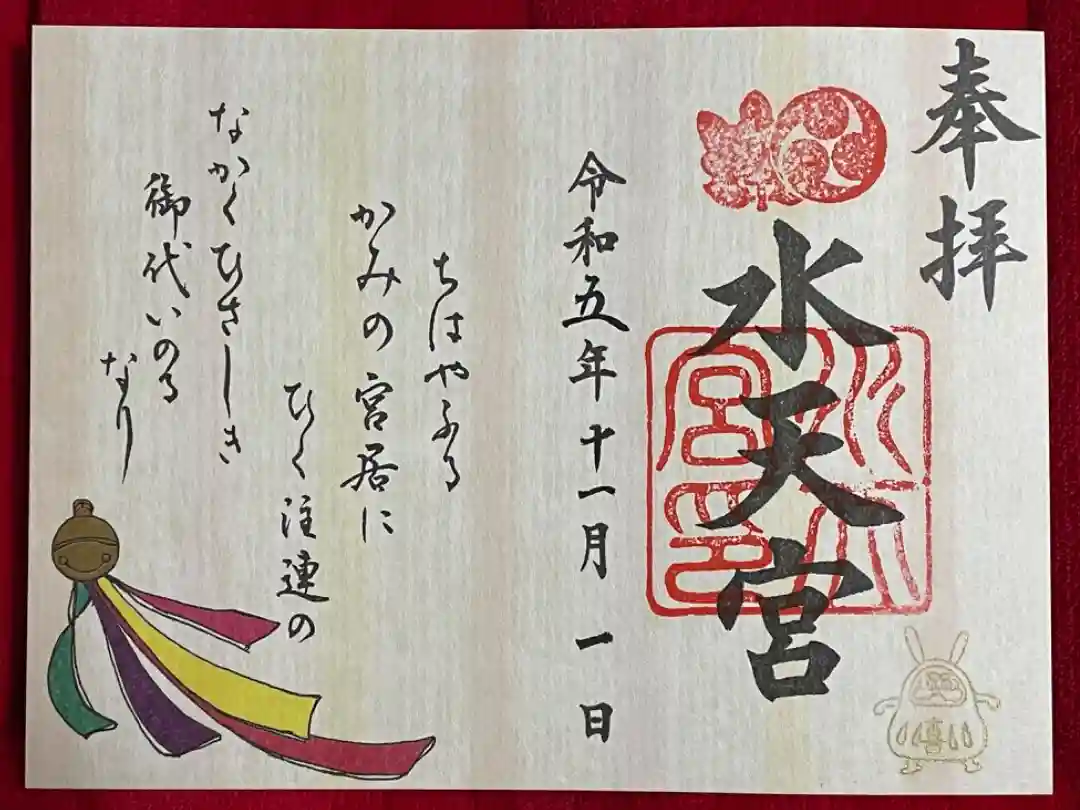 奉拝
水天宮
水天宮印
令和五年十一月一日
ちはやふる
かみの宮居に
ひく注連の
なかくひさしき
御代いのる
なり
喜